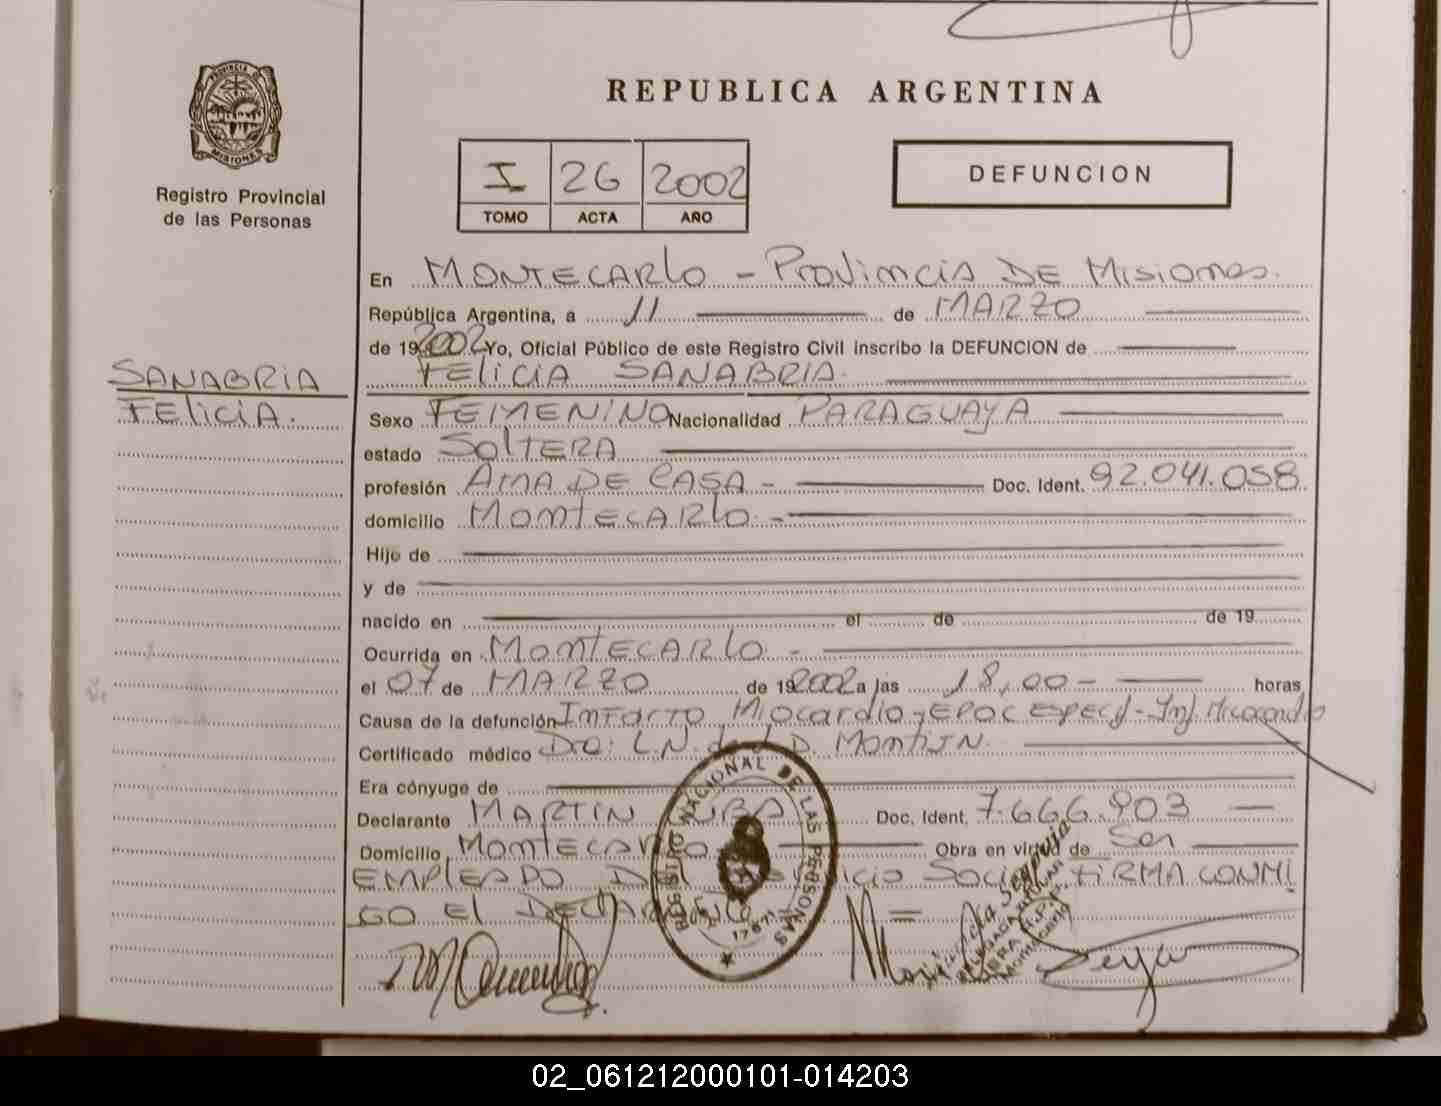 REPUBLICA ARGENTINA
PROVINCIA DE
MISIONES
Registro Provincial
de las Personas
I 26 2002
TOMO ACTA AÑO
DEFUNCION
En MONTECARLO - Provincia DE Misiones.
República Argentina, a 11 de MARZO
de 19 2002 Yo, Oficial Público de este Registro Civil inscribo la DEFUNCION de
FELICIA SANABRIA.
SANABRIA
FELICIA.
Sexo FEMENINO Nacionalidad PARAGUAYA
estado SOLTERA
profesión AMA DE CASA - Doc. Ident. 92.041.058
domicilio MONTECARLO -
Hijo de
y de
nacido en el de de 19
Ocurrida en MONTECARLO. -
el 07 de MARZO de 19 2002 a las 18,00 - horas
Causa de la defunción Infarto Miocardio - EPOC
Certificado médico Dra: L.N. de
Era cónyuge de
Declarante MARTIN Doc. Ident. 7.666.903
Domicilio MONTECARLO Obra en virtud de Ser
EMPLEADO Del Servicio Social FIRMA CONMI
GO El DECLARANTE
REGISTRO NACIONAL DE LAS PERSONAS
17671
02_061212000101-014203